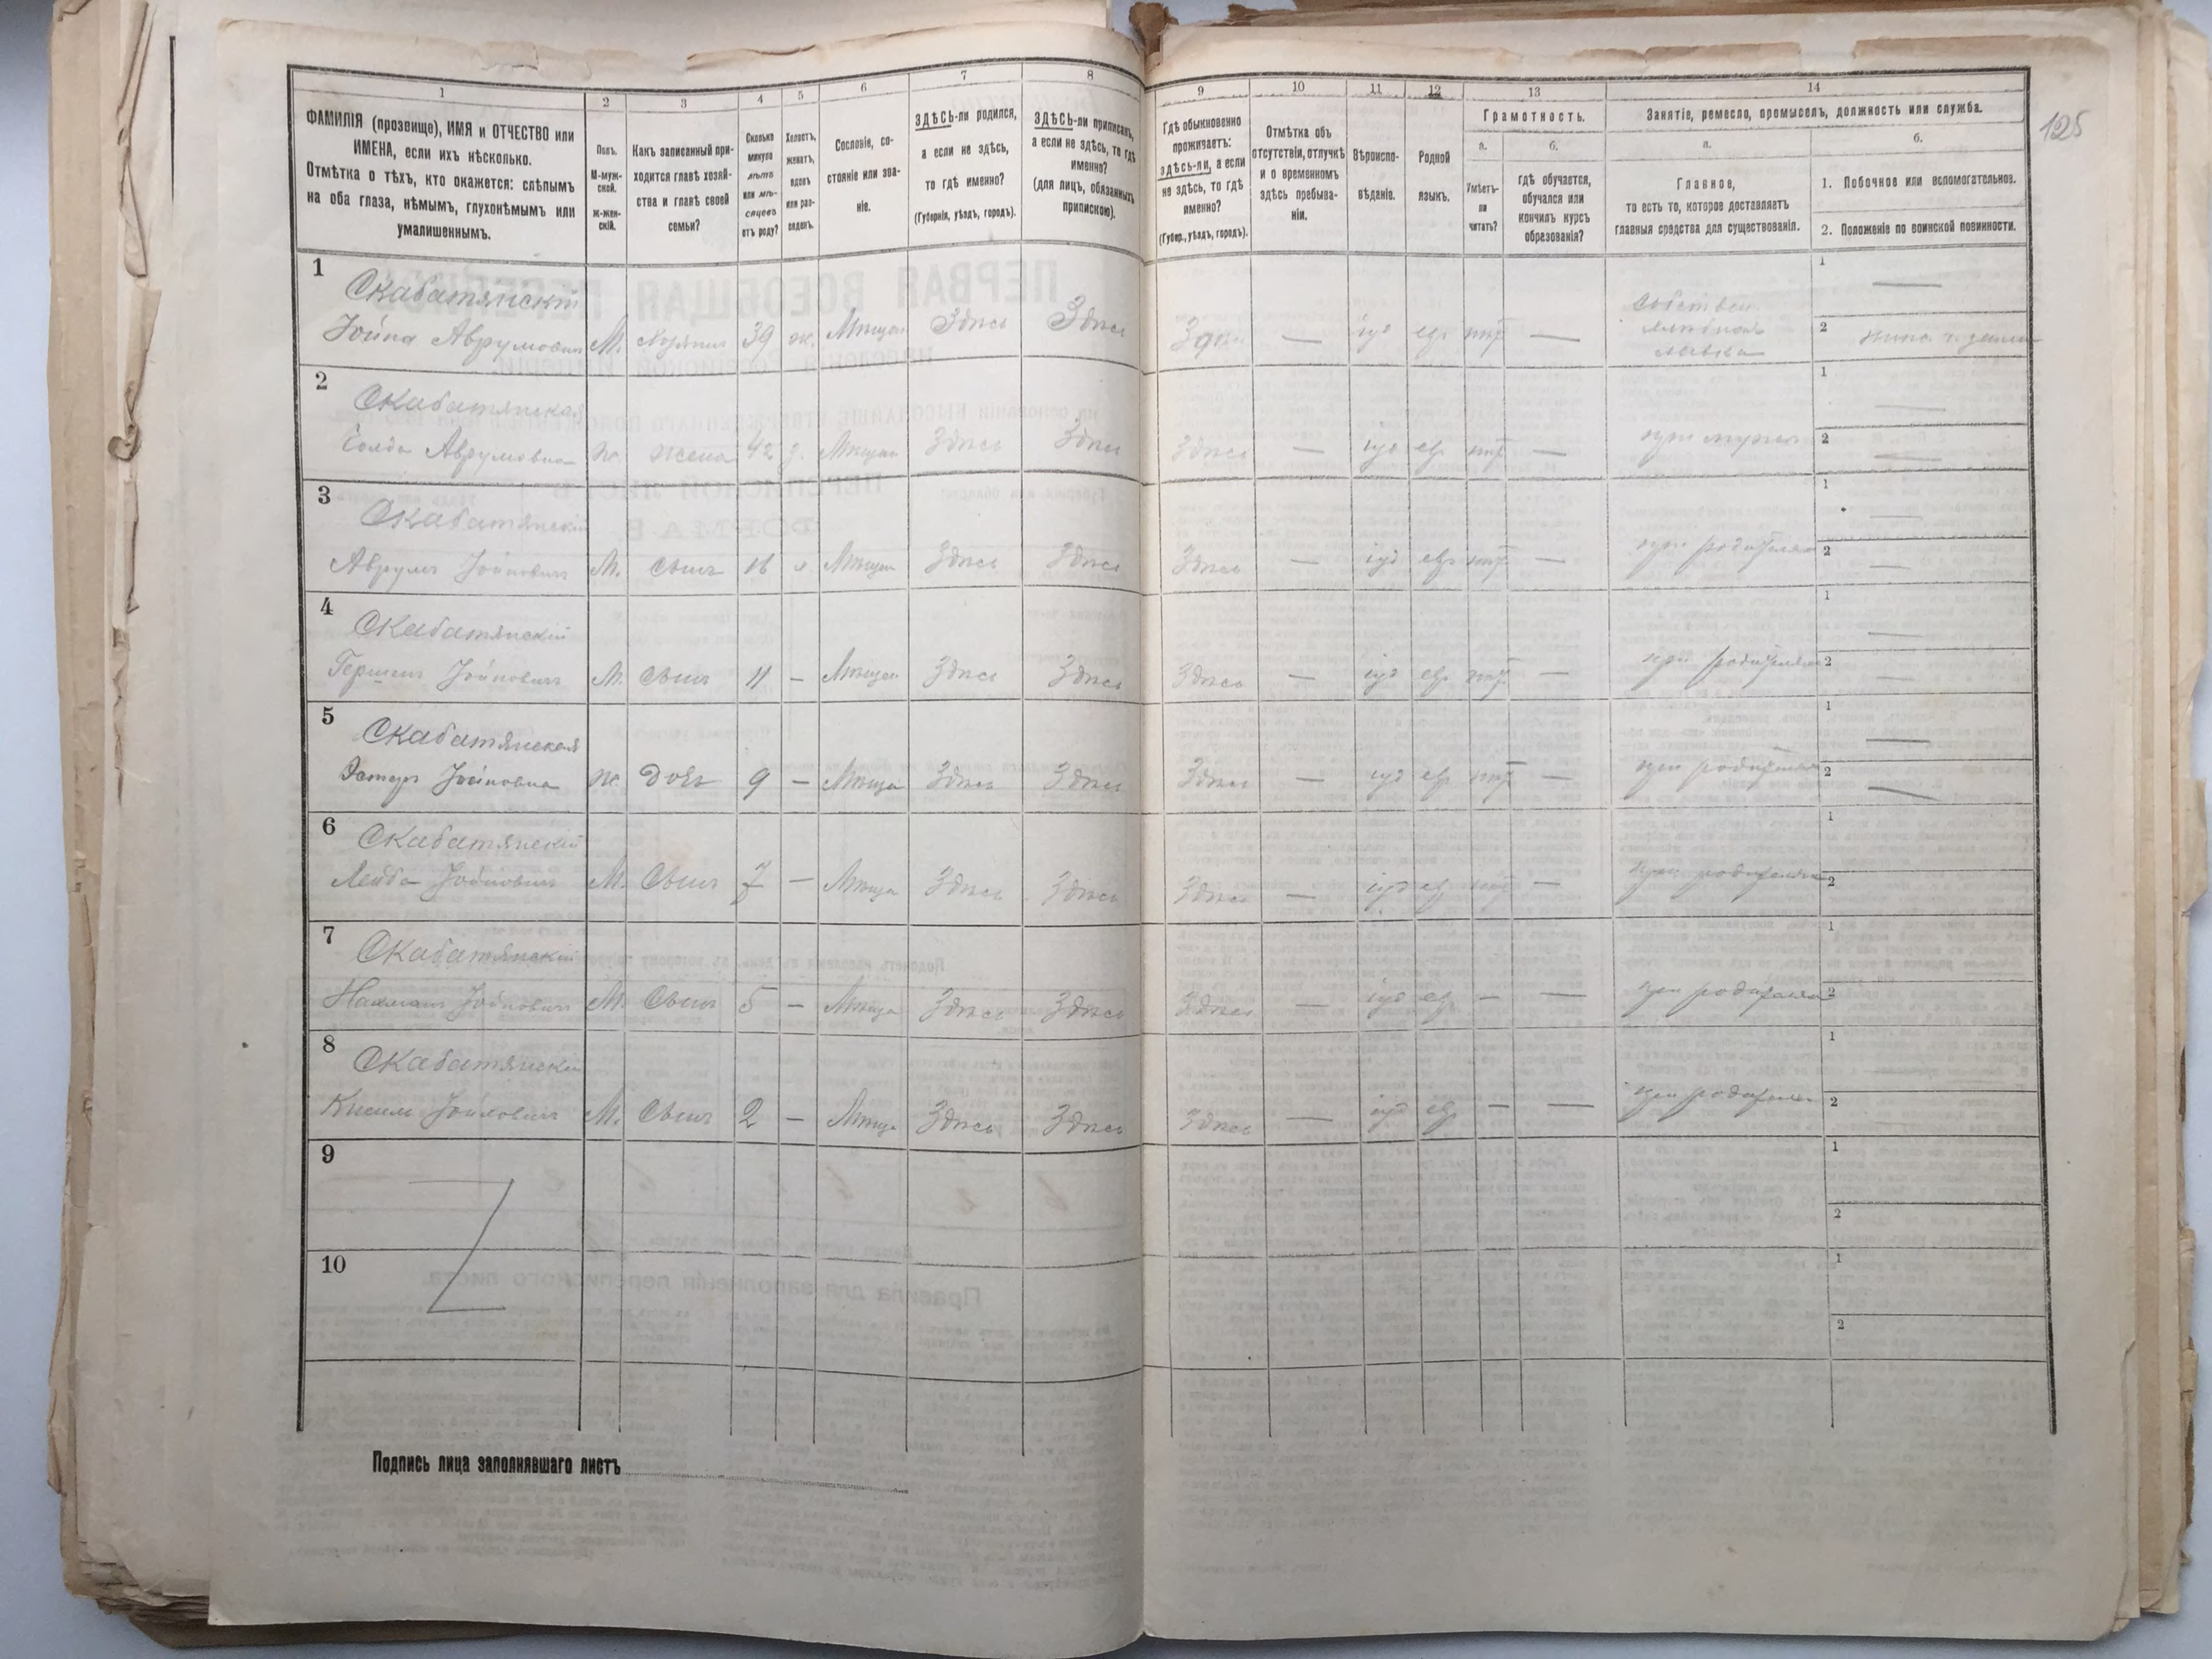 125
1 2 3 4 5 6 7 8 9 10 11 12 13 14
ФАМИЛІЯ (прозвище), ИМЯ и ОТЧЕСТВО или
ИМЕНА, если ихъ нѣсколько.
Отмѣтка о тѣхъ, кто окажется: слѣпымъ
на оба глаза, нѣмымъ, глухонѣмымъ или
умалишеннымъ.
Полъ.
М-муж-
ской.
ж-жен-
скій.
Какъ записанный при-
ходится главѣ хозяй-
ства и главѣ своей
семьи?
Сколько
минуло
лѣтъ
или мѣ-
сяцевъ
отъ роду?
Холостъ,
женатъ,
вдовъ
или раз-
веденъ.
Сословіе, со-
стояніе или зва-
ніе.
ЗДѢСЬ-ли родился,
а если не здѣсь,
то гдѣ именно?
(Губернія, уѣздъ, городъ).
ЗДѢСЬ-ли приписанъ,
а если не здѣсь, то гдѣ
именно?
(для лицъ, обязанныхъ
припискою).
Гдѣ обыкновенно
проживаетъ:
здѣсь-ли, а если
не здѣсь, то гдѣ
именно?
(Губер., уѣздъ, городъ).
Отмѣтка объ
отсутствіи, отлучкѣ
и о временномъ
здѣсь пребыва-
ніи.
Вѣроиспо-
вѣданіе.
Родной
языкъ.
Грамотность.
а.
Умѣетъ-
ли
читать?
б.
гдѣ обучается,
обучался или
кончилъ курсъ
образованія?
Занятіе, ремесло, промыселъ, должность или служба.
а.
Главное,
то есть то, которое доставляетъ
главныя средства для существованія.
б.
1. Побочное или вспомогательное.
2. Положеніе по воинской повинности.
1
Скабатянскій
Іойна Аврумовичъ М. Хозяинъ 39 ж. Мѣщан Здѣсь Здѣсь Здѣсь — іуд евр —
лавка
1 —
2
2
Скабатянская
Аврумовна ж. жена 42 з. Мѣщан Здѣсь Здѣсь Здѣсь — іуд евр — при мужѣ
1 —
2 —
3
Скабатянскій
Аврумъ Іойновичъ М. Сынъ 16 х Мѣщан Здѣсь Здѣсь Здѣсь — іуд евр — при родителяхъ
1 —
2 —
4
Скабатянскій
Гершъ Іойновичъ М. Сынъ 11 — Мѣщан Здѣсь Здѣсь Здѣсь — іуд евр — при родителяхъ
1 —
2 —
5
Скабатянская
Эстеръ Іойновна ж. дочь 9 — Мѣща Здѣсь Здѣсь Здѣсь — іуд евр — при родителяхъ
1 —
2 —
6
Скабатянскій
Лейба Іойновичъ М. Сынъ 7 — Мѣща Здѣсь Здѣсь Здѣсь — іуд евр — при родителяхъ
1
2
7
Скабатянскій
Нахманъ Іойновичъ М. Сынъ 5 — Мѣща Здѣсь Здѣсь Здѣсь — іуд евр — — при родителяхъ
1
2
8
Скабатянскій
Іойновичъ М. Сынъ 2 — Мѣща Здѣсь Здѣсь Здѣсь — іуд евр — — при родителяхъ
1
2
9
1
2
10
1
2
Подпись лица заполнявшаго листъ